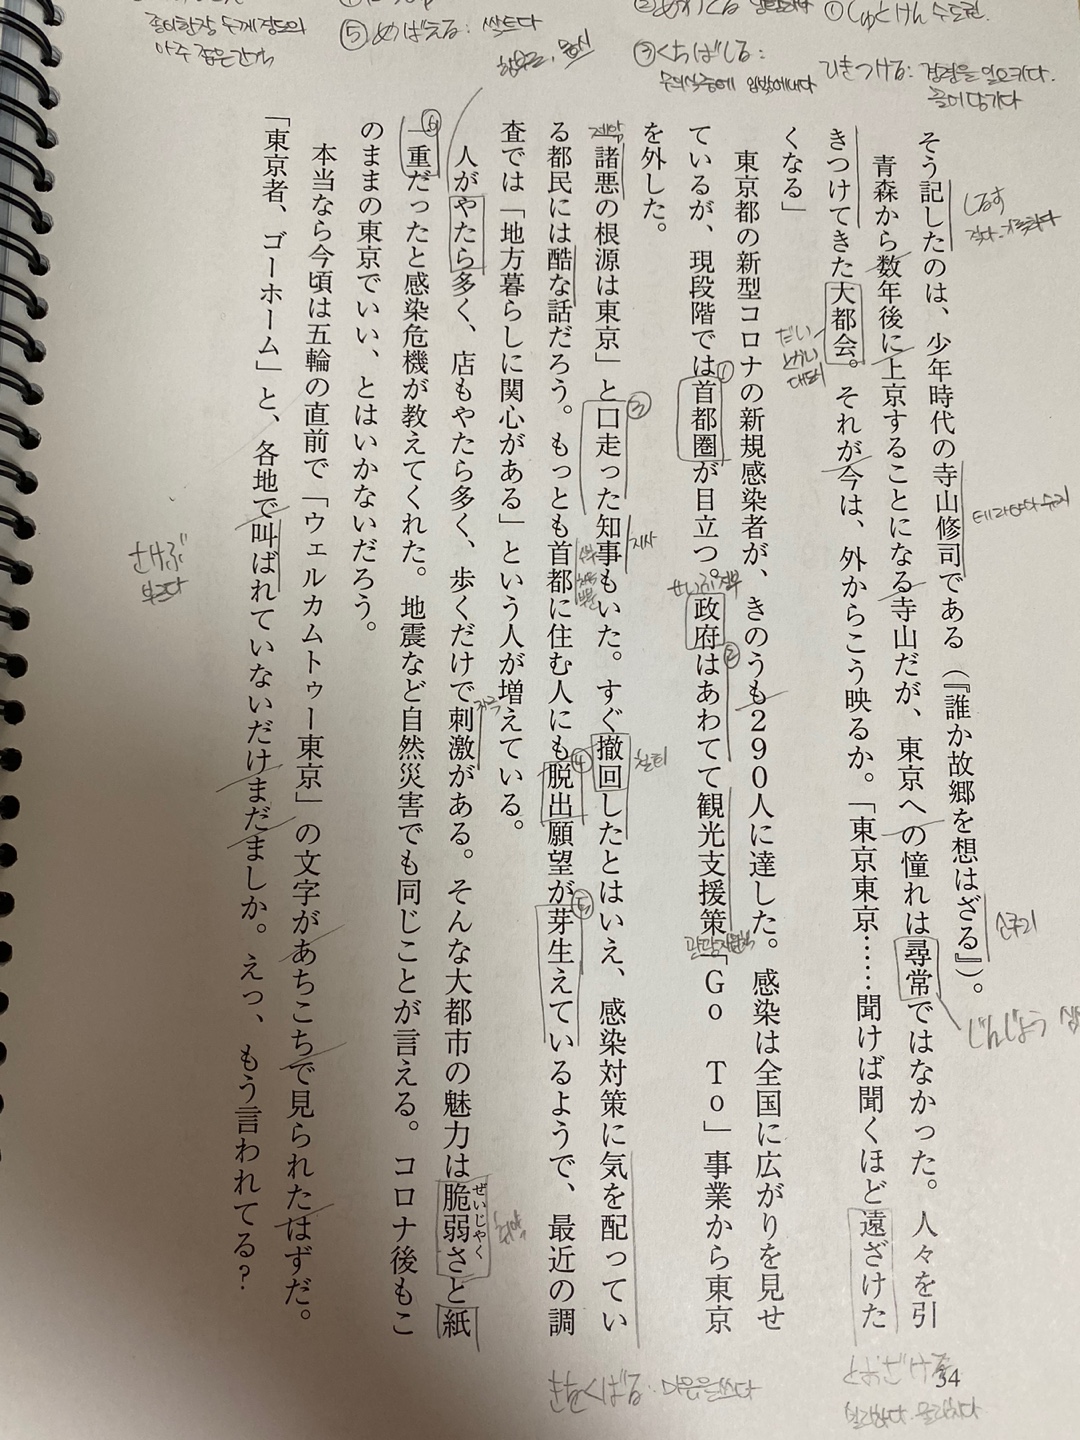 종이한장 두께정도의
아주 좁은 간격
⑤めばえる: 싹트다
③くちばしる:
무의식중에 입밖에내다
①しゅとけん 수도권
ひきつける: 경련을 일으키다.
끌어당기다
そう記したのは、少年時代の寺山修司である（『誰か故郷を想はざる』）。
青森から数年後に上京することになる寺山だが、東京への憧れは尋常ではなかった。人々を引
きつけてきた大都会。それが今は、外からこう映るか。「東京東京……聞けば聞くほど遠ざけた
くなる」
東京都の新型コロナの新規感染者が、きのうも290人に達した。感染は全国に広がりを見せ
ているが、現段階では首都圏が目立つ。政府はあわてて観光支援策「Go To」事業から東京
を外した。
「諸悪の根源は東京」と口走った知事もいた。すぐ撤回したとはいえ、感染対策に気を配ってい
る都民には酷な話だろう。もっとも首都に住む人にも脱出願望が芽生えているようで、最近の調
査では「地方暮らしに関心がある」という人が増えている。
人がやたら多く、店もやたら多く、歩くだけで刺激がある。そんな大都市の魅力は脆弱さと紙
ぜいじゃく
一重だったと感染危機が教えてくれた。地震など自然災害でも同じことが言える。コロナ後もこ
のままの東京でいい、とはいかないだろう。
本当なら今頃は五輪の直前で「ウェルカムトゥー東京」の文字があちこちで見られたはずだ。
「東京者、ゴーホーム」と、各地で叫ばれていないだけまだましか。えっ、もう言われてる？
しるす
だい
とかい
じんじょう
지사
철회
さけぶ
きをくばる. 마음을쓰다
とおざける
34